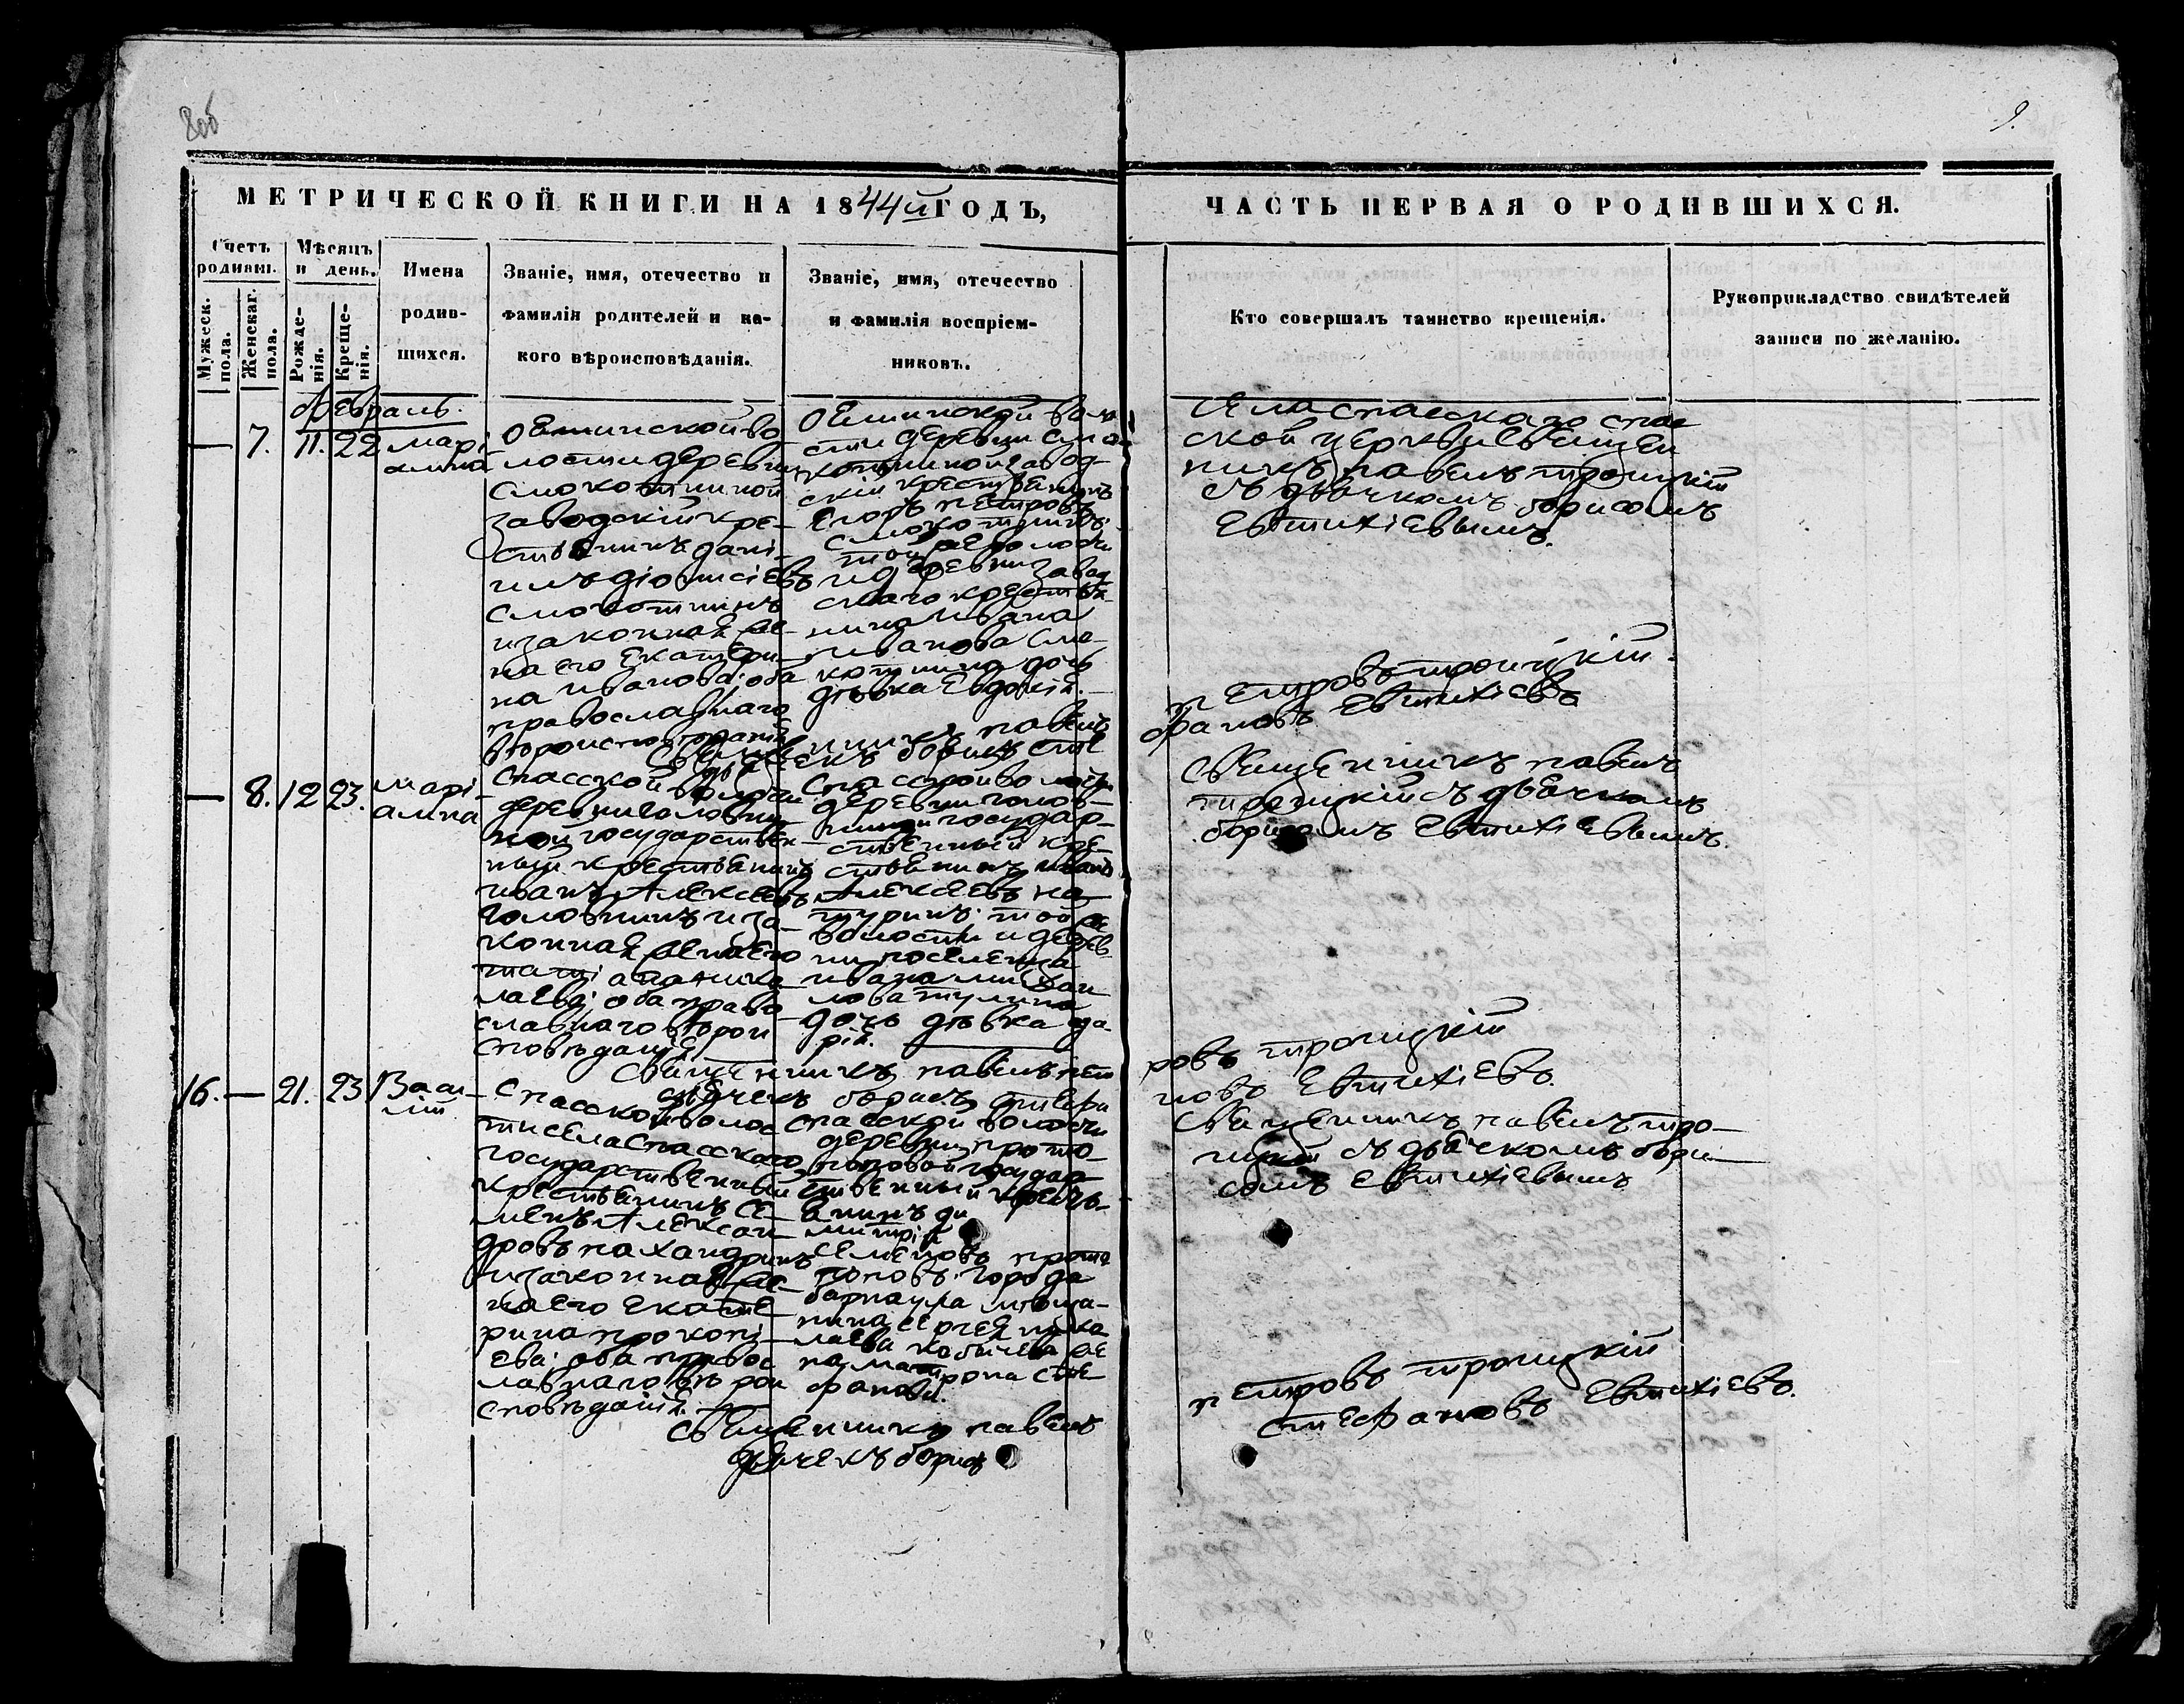 8об
9.
МЕТРИЧЕСКОЙ КНИГИ НА 1844й ГОДЪ,
ЧАСТЬ ПЕРВАЯ О РОДИВШИХСЯ.
Счетъ родивш.
Мужеск. пола.
Женскаг. пола.
Мѣсяцъ и день.
Рожде-
нія.
Креще-
нія.
Имена
родив-
шихся.
Званіе, имя, отечество и
фамилія родителей и ка-
кого вѣроисповѣданія.
Званіе, имя, отечество
и фамилія воспріем-
никовъ.
Кто совершалъ таинство крещенія.
Рукоприкладство свидѣтелей
записи по желанію.
Февраль.
— 7. 11. 22
марі-
амна
волостидеревни
Смокотиной
заводскій кре-
стьянинъ дані-
илъ діонисіевъ
Смокотинъ
изаконная же-
на его Екатери-
на иванова; оба
православнаго
вѣроисповѣданія
деревни Смо-
котиной завод-
скій крестьянинъ
Егоръ петровъ
Смокотинъ;
тойже волости
идеревни завод-
скаго крестьян-
нина ивана
иванова Смо-
котина дочь
дѣвка Евдокія.
Села спасскаго спас
ской церкви священ
никъ павелъ троицкій
съ дьячкомъ борисомъ
Евтихіевымъ.
Священникъ павелъ
петровъ троицкій.
дьячекъ борисъ сте
фановъ Евтихіевъ
— 8. 12 23.
марі-
амна
Спасской волости
деревни головин-
ной государствен-
ный крестьянинъ
иванъ Алексѣевъ
головинъ иза-
конная жена его
татіана нико-
лаева; оба право-
славнаго вѣрои
сповѣданія.
Спасской волости
деревни голов-
иной государ-
ственный кре-
стьянинъ иванъ
Алексѣевъ
тойже
волости идерев-
ни поселенца
ивана михаи-
лова
дочь дѣвка да-
рія.
Священникъ павелъ
троицкій съ дьячкомъ
борисомъ Евтихіевымъ.
Священникъ павелъ пет
ровъ троицкій
дьячекъ борисъ стефа
новъ Евтихіевъ.
16. — 21. 23
Васи-
лій
Спасской волос
ти села Спасскаго
государственный
крестьянинъ Се-
менъ Алексан-
дровъ
изаконная же-
на его екате-
рина прокопі-
ева; оба правос
лавнаго вѣрои
сповѣданія.
Спасской волости
деревни прото-
поповой государ
ственный кресть-
янинъ ди
митрій
Семеновъ прото
поповъ; города
барнаула мѣща-
нина
же
на матрона сте
фанова.
Священникъ павелъ тро-
ицкій съ дьячкомъ бори-
сомъ Евтихіевымъ
Священникъ павелъ
петровъ троицкій
дьячекъ борисъ
стефановъ Евтихіевъ.